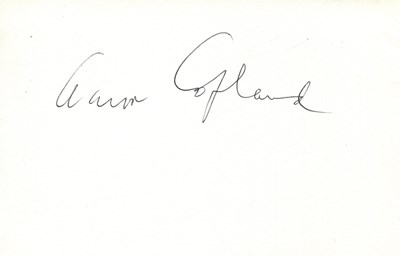 Aaron Copland